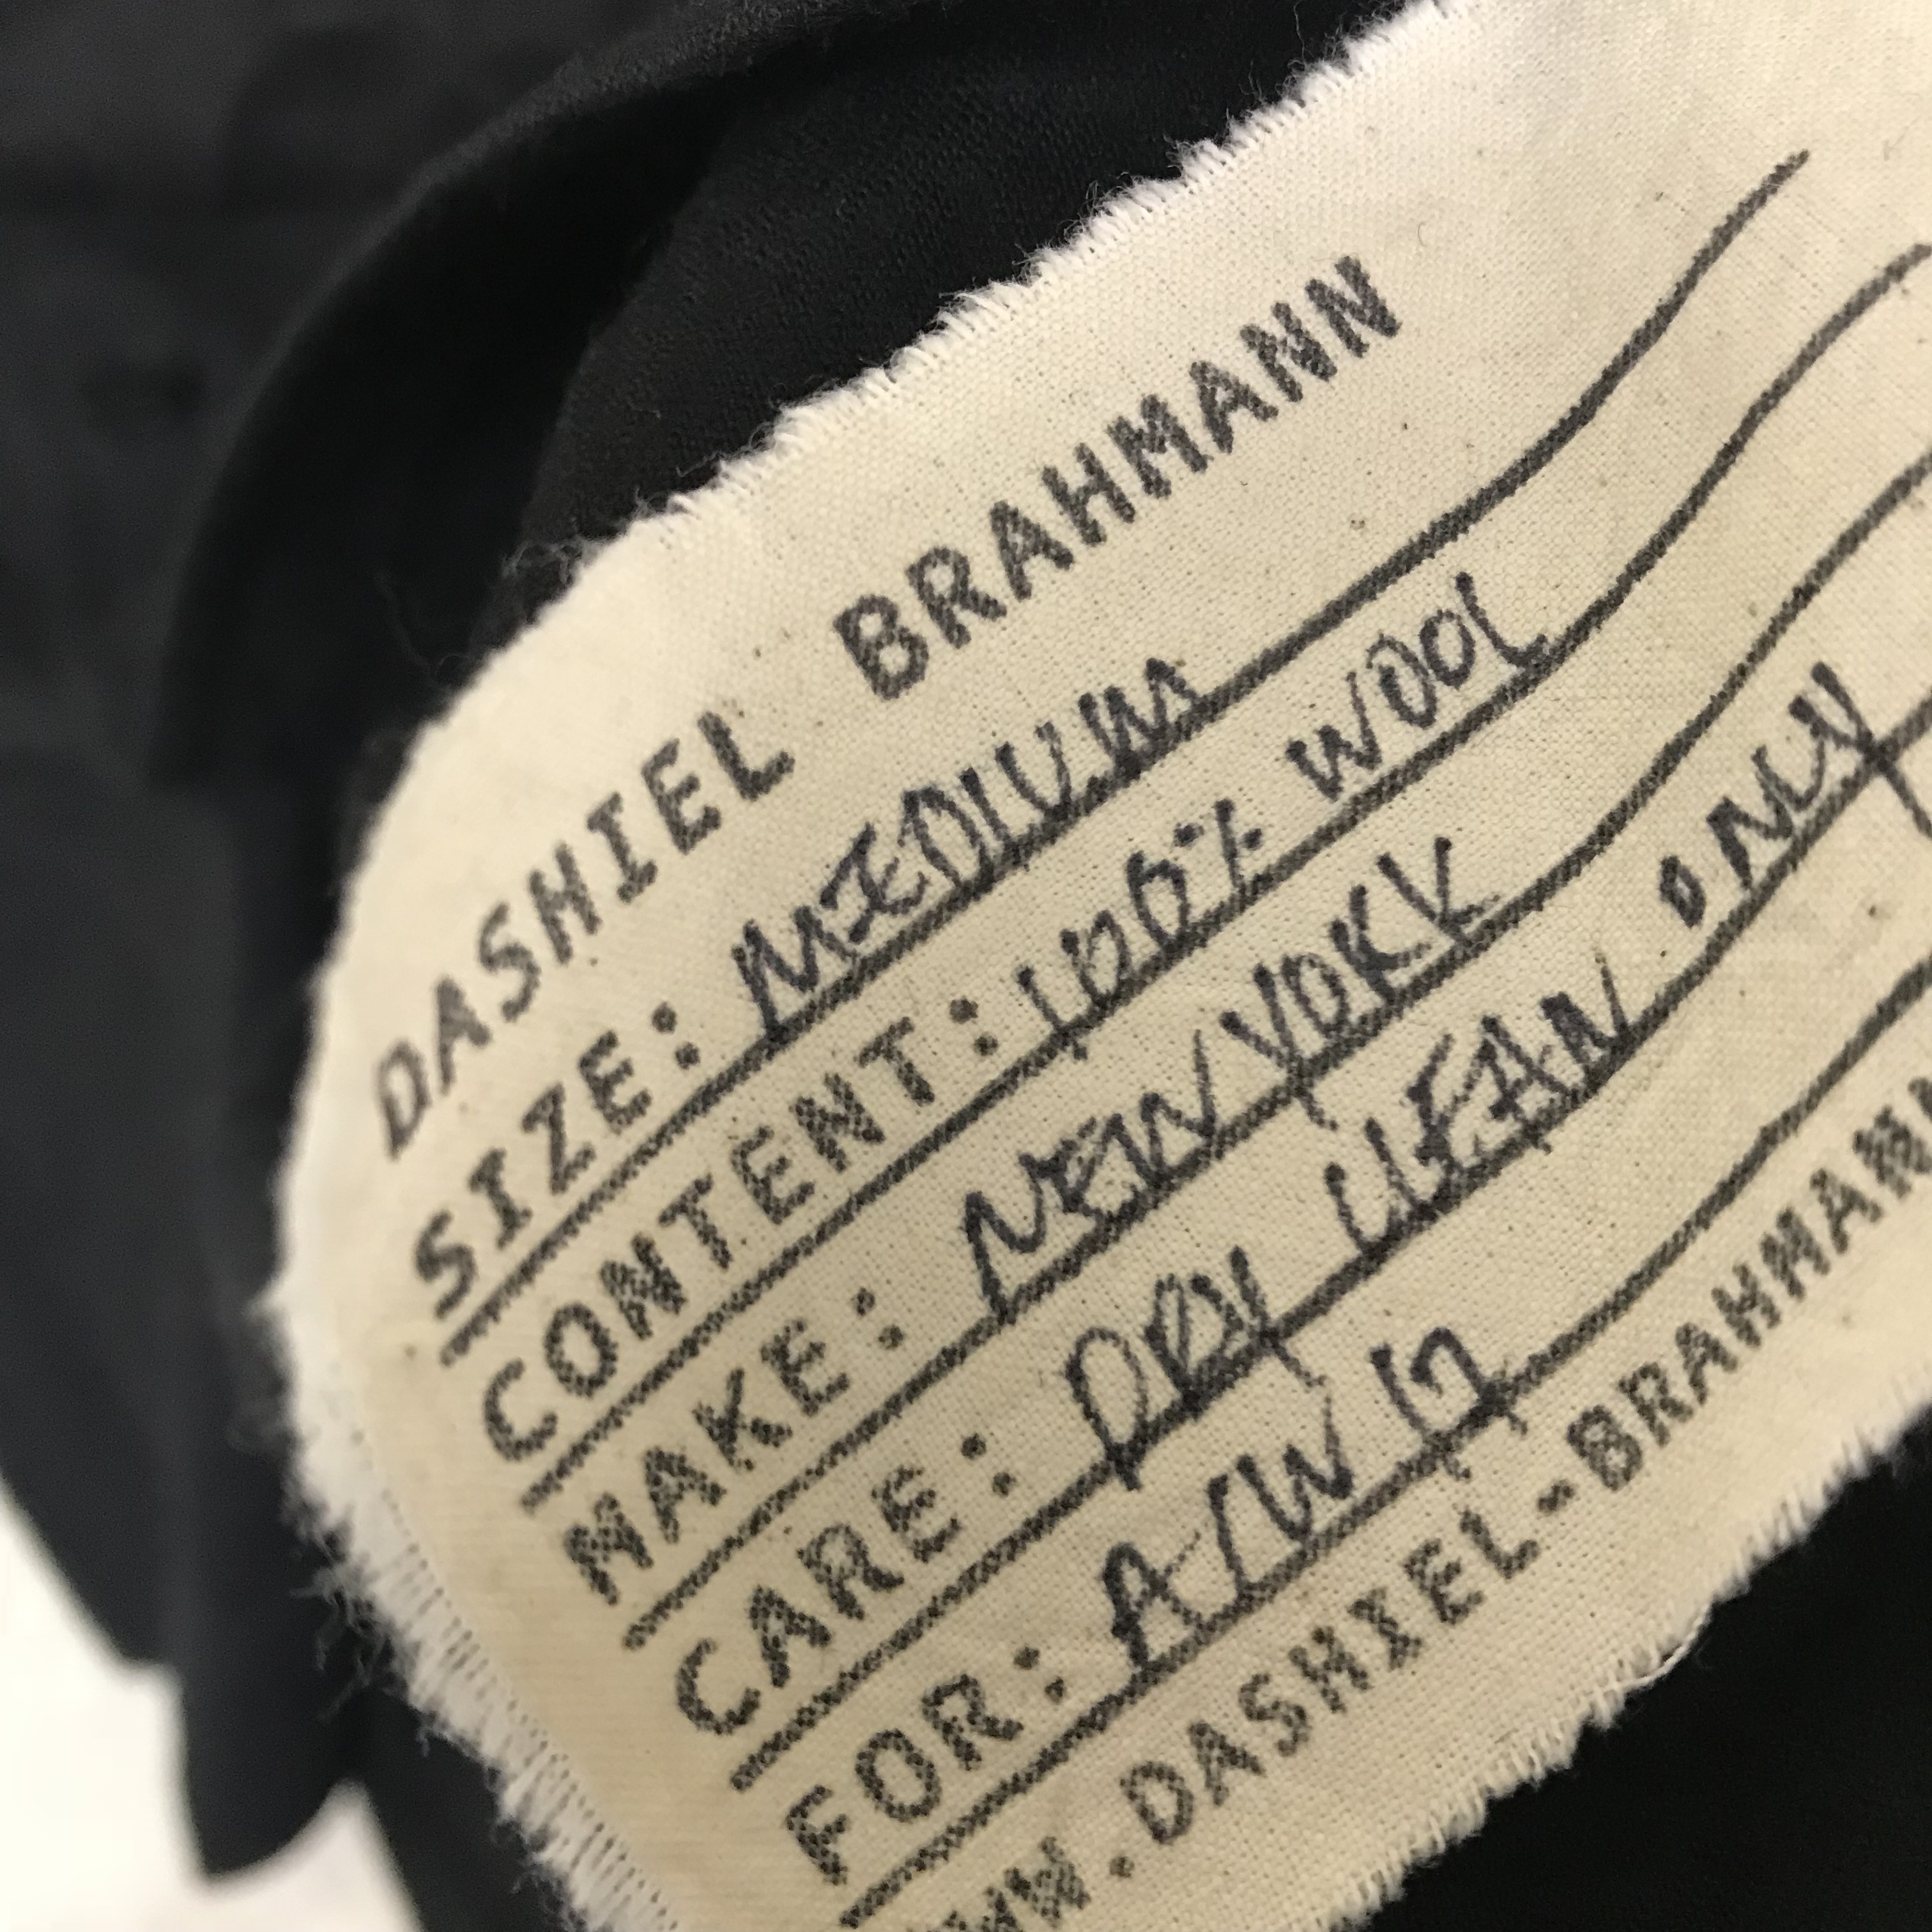 DASHIEL BRAHMANN
SIZE: MEDIUM
CONTENT: 100% WOOL
MAKE: NEW YORK
CARE: DRY CLEAN ONLY
FOR: A/W 17
WW.DASHIEL-BRAHMANN